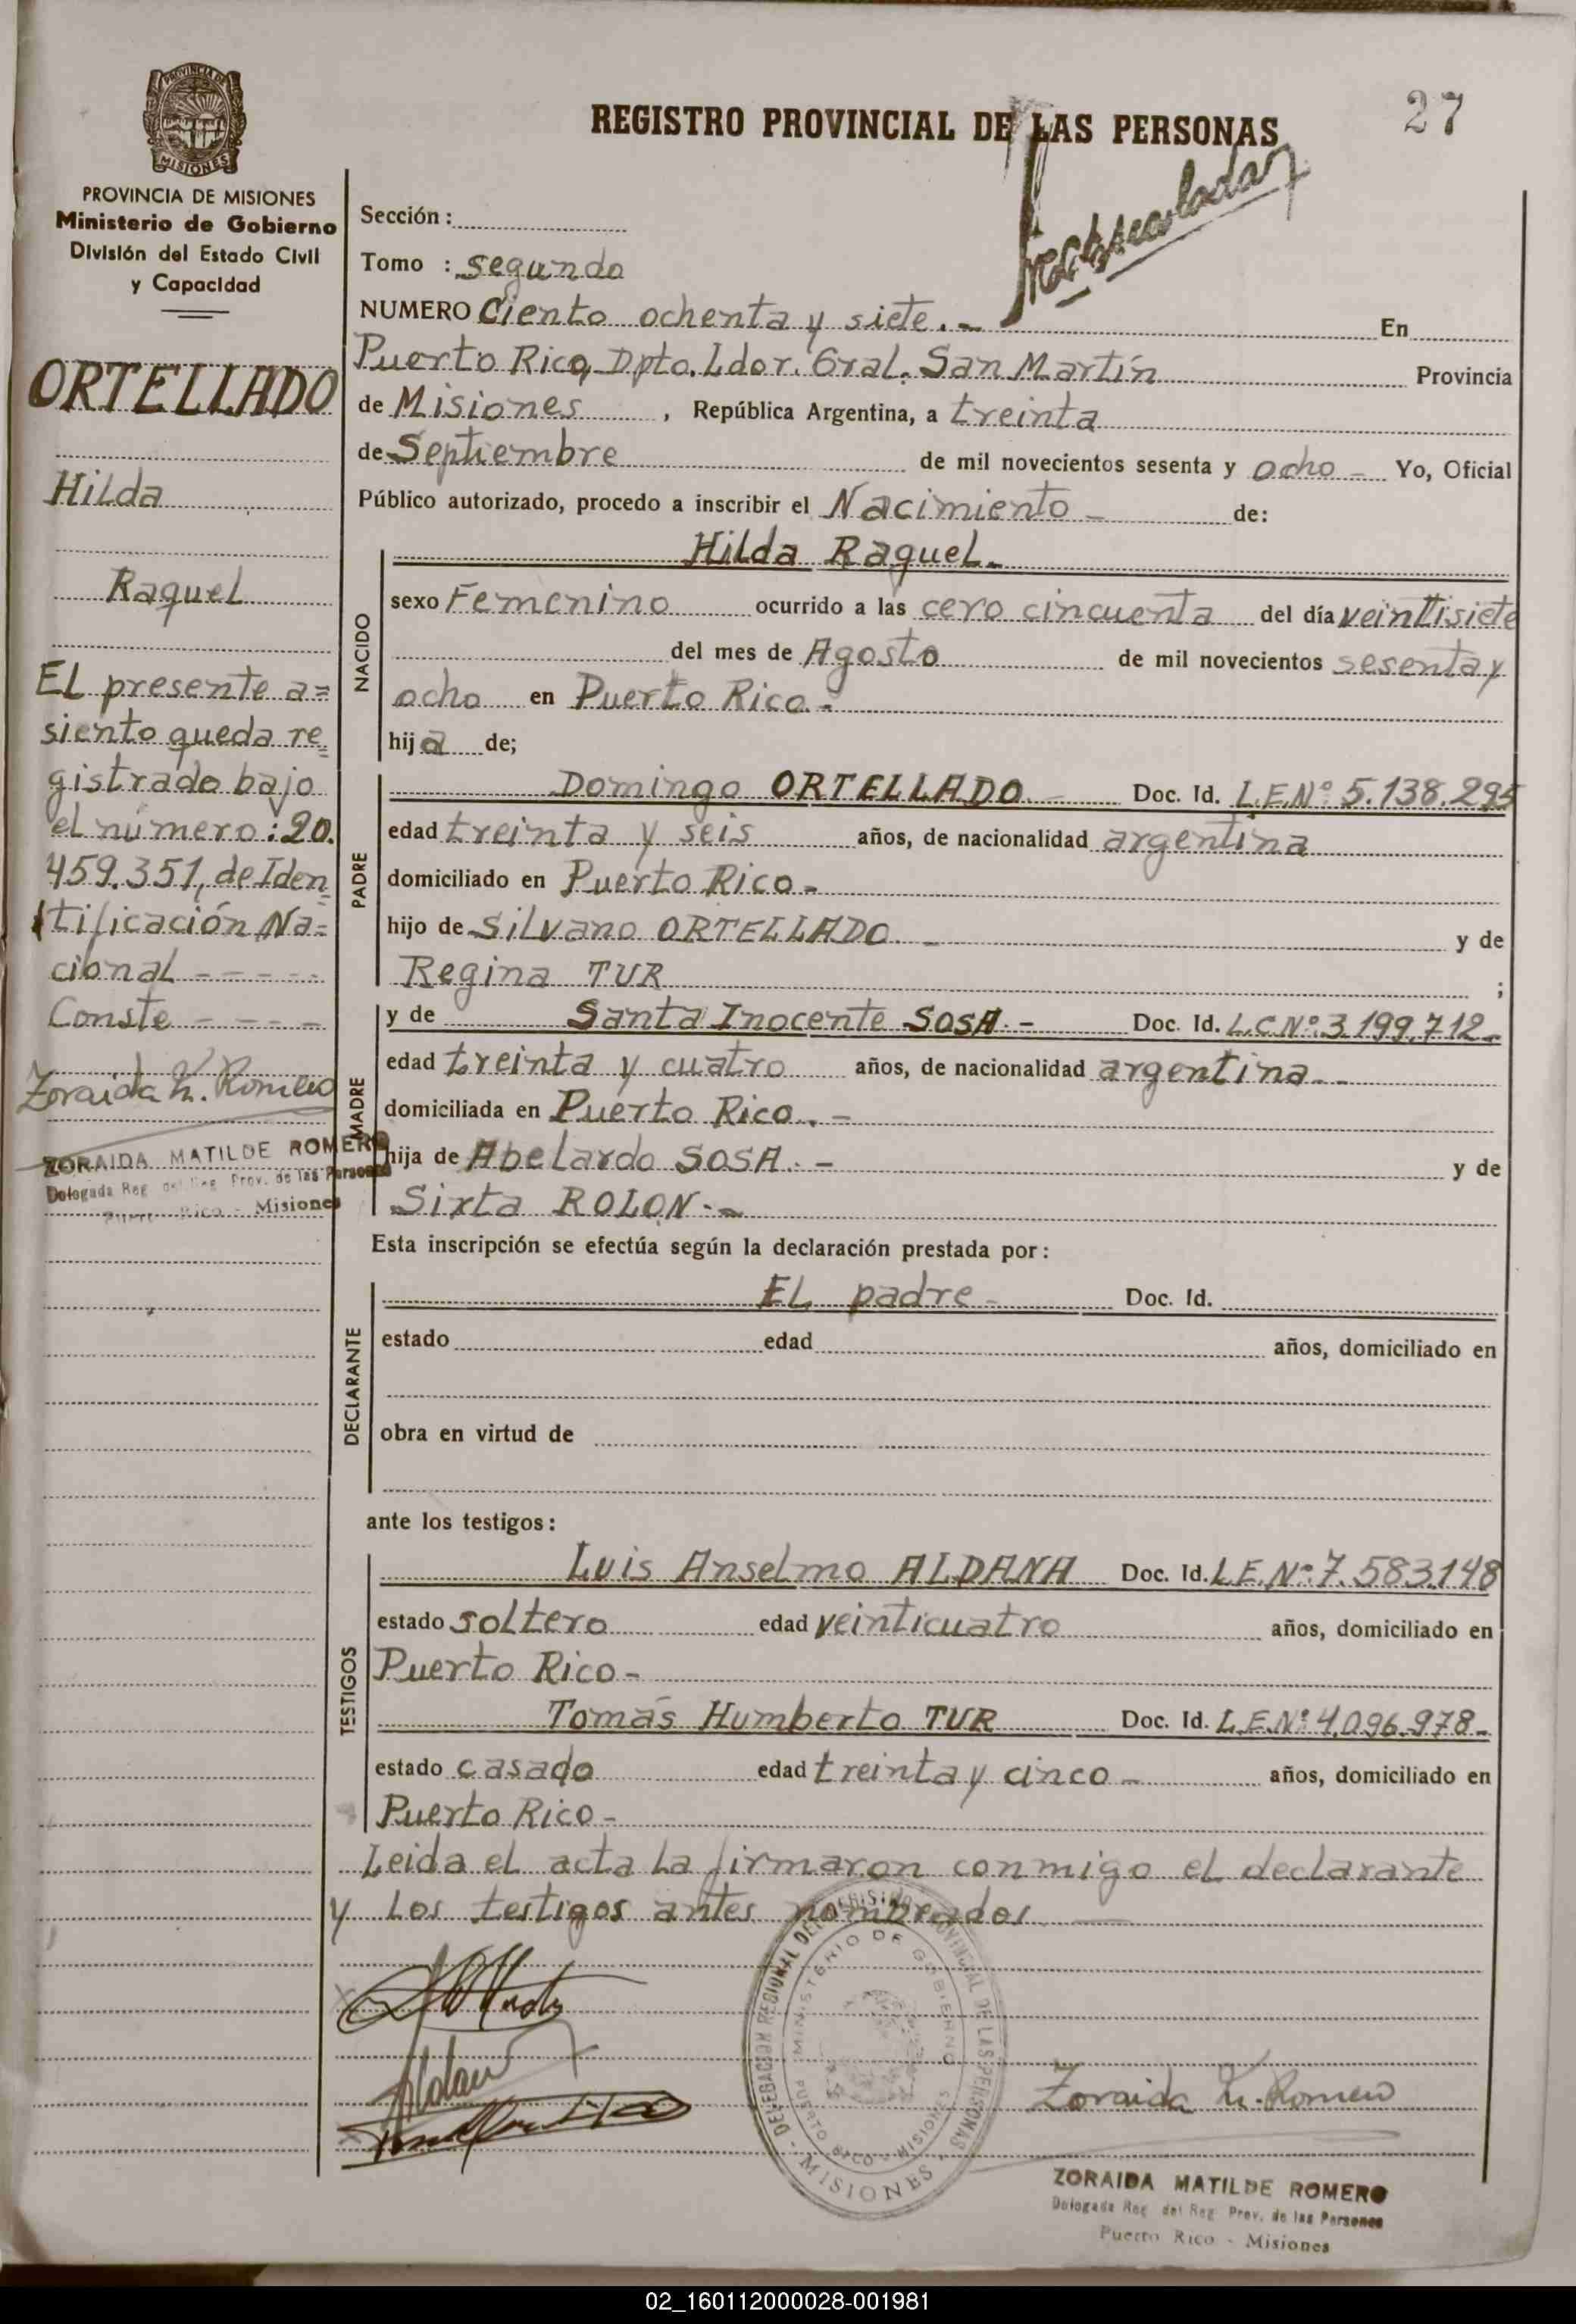 27
REGISTRO PROVINCIAL DE LAS PERSONAS
PROVINCIA DE
MISIONES
PROVINCIA DE MISIONES
Ministerio de Gobierno
División del Estado Civil
y Capacidad
ORTELLADO
Hilda
Raquel
El presente a=
siento queda re=
gistrado bajo
el número: 20.
459.351, de Iden
tificación Na=
cional - - - - -
Conste - - - -
Zoraida M. Romero
ZORAIDA MATILDE ROMERO
Delegada Reg. del Reg. Prov. de las Personas
Puerto Rico - Misiones
Sección:
Tomo : segundo
NUMERO Ciento ochenta y siete.- En
Puerto Rico, Dpto. Ldor. Gral. San Martín Provincia
de Misiones , República Argentina, a treinta
de Septiembre de mil novecientos sesenta y ocho - Yo, Oficial
Público autorizado, procedo a inscribir el Nacimiento - de:
NACIDO
Hilda Raquel.
sexo Femenino ocurrido a las cero cincuenta del día veintisiete
del mes de Agosto de mil novecientos sesenta y
ocho en Puerto Rico.-
hija de;
PADRE
Domingo ORTELLADO.- Doc. Id. L.E.Nº 5.138.295
edad treinta y seis años, de nacionalidad argentina
domiciliado en Puerto Rico-
hijo de Silvano ORTELLADO. - y de
Regina TUR ;
MADRE
y de Santa Inocente SOSA.- Doc. Id. L.C.Nº: 3.199.712-
edad treinta y cuatro años, de nacionalidad argentina.-
domiciliada en Puerto Rico.-
hija de Abelardo SOSA.- y de
Sixta ROLON.-
Esta inscripción se efectúa según la declaración prestada por:
DECLARANTE
El padre- Doc. Id.
estado edad años, domiciliado en
obra en virtud de
ante los testigos:
TESTIGOS
Luis Anselmo ALDANA Doc. Id. L.E.Nº: 7.583.148
estado soltero edad veinticuatro años, domiciliado en
Puerto Rico-
Tomás Humberto TUR Doc. Id. L.E.Nº: 4.096.978-
estado casado edad treinta y cinco- años, domiciliado en
Puerto Rico-
Leida el acta la firmaron conmigo el declarante
y los testigos antes nombrados. -
DELEGACION REGIONAL DEL REGISTRO PROVINCIAL DE LAS PERSONAS
MINISTERIO DE GOBIERNO
PUERTO RICO - MISIONES
- MISIONES -
Aldana
Zoraida M. Romero
ZORAIDA MATILDE ROMERO
Delegada Reg. del Reg. Prov. de las Personas
Puerto Rico - Misiones
02_160112000028-001981